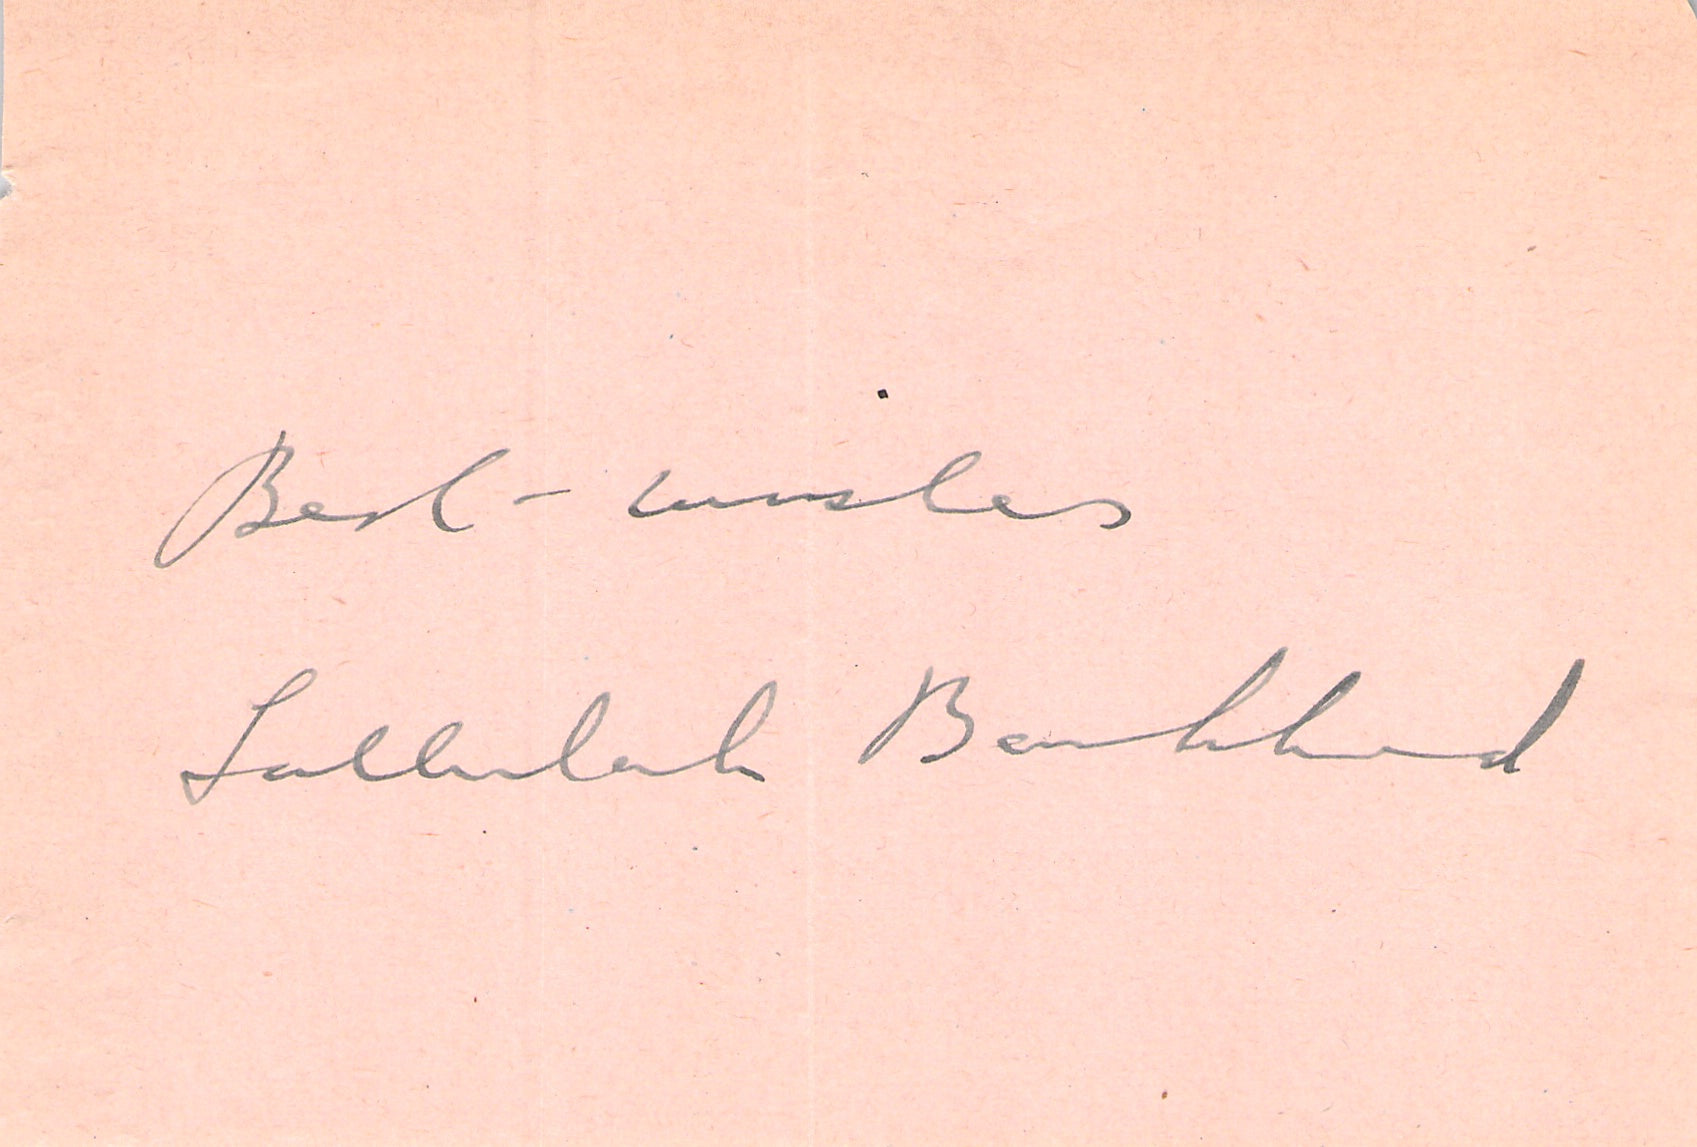 Best wishes
Tallulah Bankhead